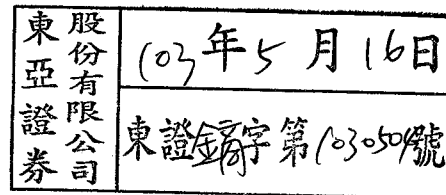 東亞證券
股份有限公司
103年5月16日
東證字第1030504號